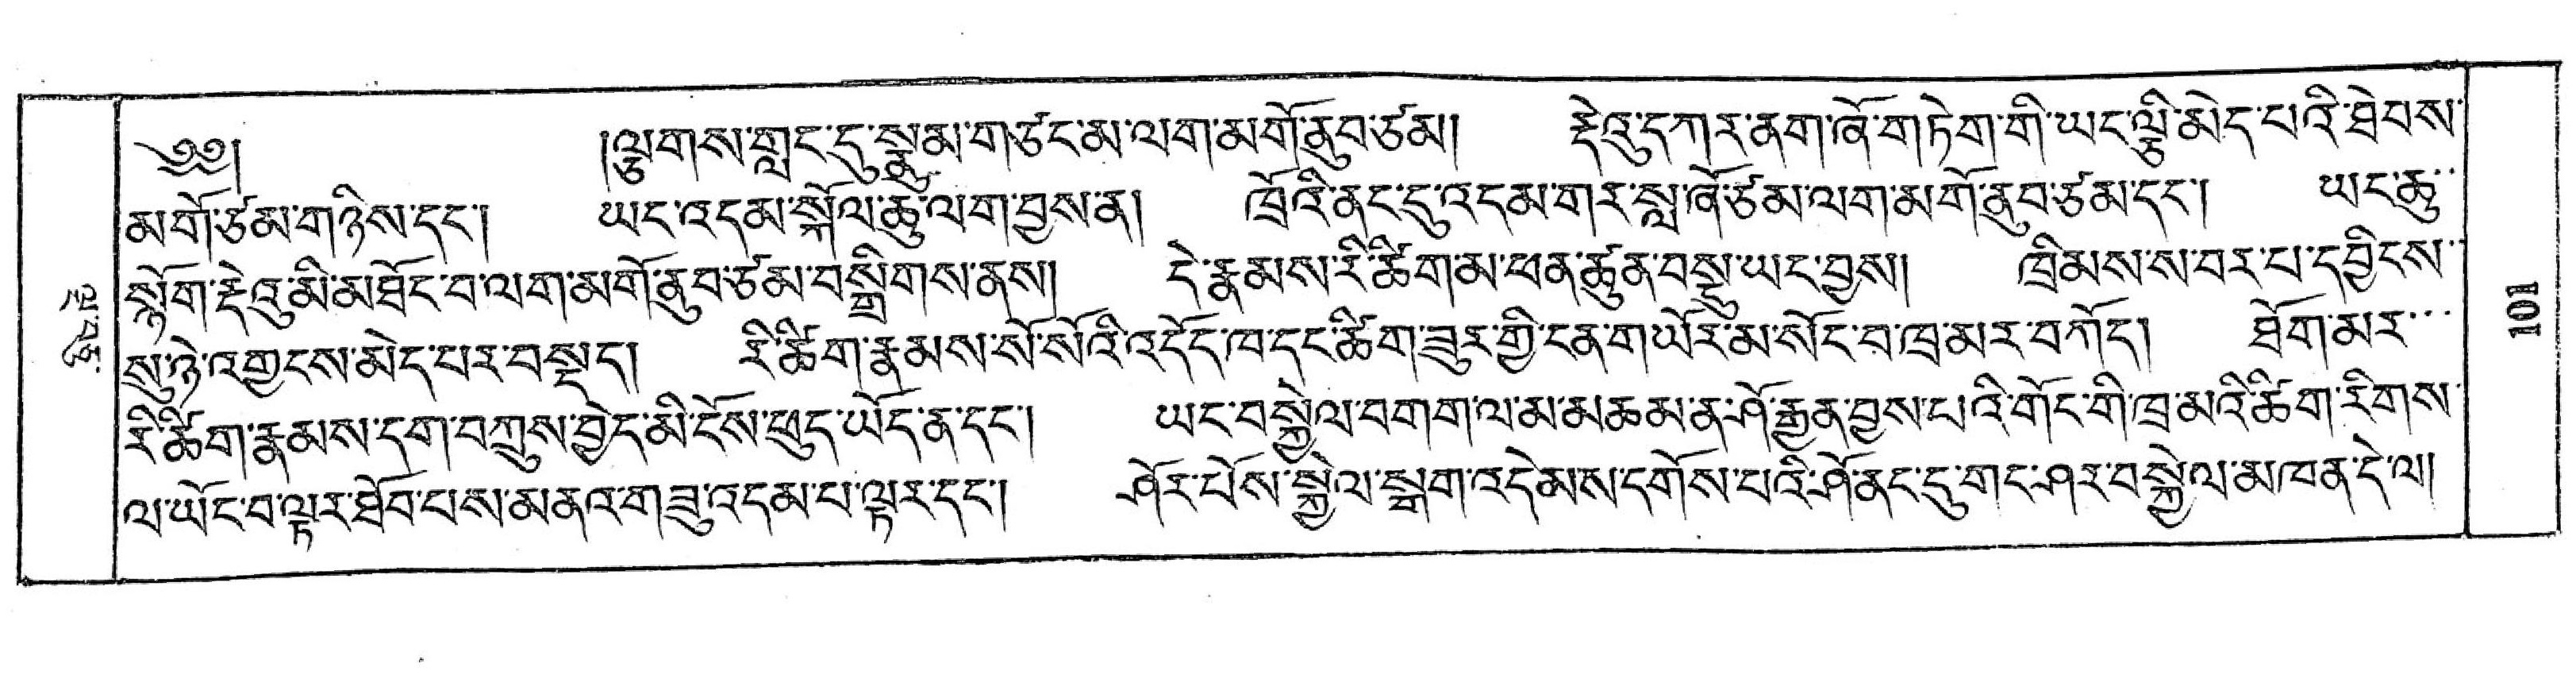 ༄༅། །ལྕགས་གླང་དུ་སྣུམ་གཙང་མ་ལག་མགོ་ནུབ་ཙམ། རྡེའུ་དཀར་ནག་ཞོ་གཏེག་གི་ཡང་ལྕི་མེད་པའི་ཐེབས་
མགོ་ཙམ་གཉིས་དང་། ཡང་འདམ་སྐོལ་ཆུ་ལག་བྱས་ན། ཁྲོའི་ནང་དུ་འདམ་གར་སླ་ཞོ་ཙམ་ལག་མགོ་ནུབ་ཙམ་དང་། ཡང་ཆུ་
སྙོག་རྡེའུ་མི་མཐོང་བ་ལག་མགོ་ནུབ་ཙམ་བསྒྲིགས་ནས། དེ་རྣམས་རི་ཚིག་མ་ཕན་ཚུན་བསྡུ་ཡང་བྱས། ཁྲིམས་ས་བར་པ་དབྱིངས་
སུ་ཉེ་འགྱངས་མེད་པར་བསྡད། རི་ཚིག་རྣམས་སོ་སོའི་འདོད་ཁ་དང་ཚིག་ཟུར་གྱི་ངན་གཡོར་མ་སོང་བ་ཁྲ་མར་བཀོད། ཐོག་མར་
རི་ཚིག་རྣམས་དག་བཀྲུས་བྱེད་མི་ངོས་ཕྲུད་ཡོད་ན་དང་། ཡང་བསྐྱེལ་བགག་ལ་མ་མཆམ་ན་ཤོ་རྒྱན་བྱས་པའི་གོང་གི་ཁྲ་མའི་ཚིག་རིགས་
ལ་ཡོང་བ་ལྟར་ཐོབ་པས་མནའ་གཟུ་འདམ་པ་ལྟར་དང་། ཤོར་པོས་སྐྱེལ་སྒག་འདེམས་དགོས་པའི་ཤོ་ནང་དུ་གང་ཤར་བསྐྱེལ་མཁན་དེ་ལ།
101